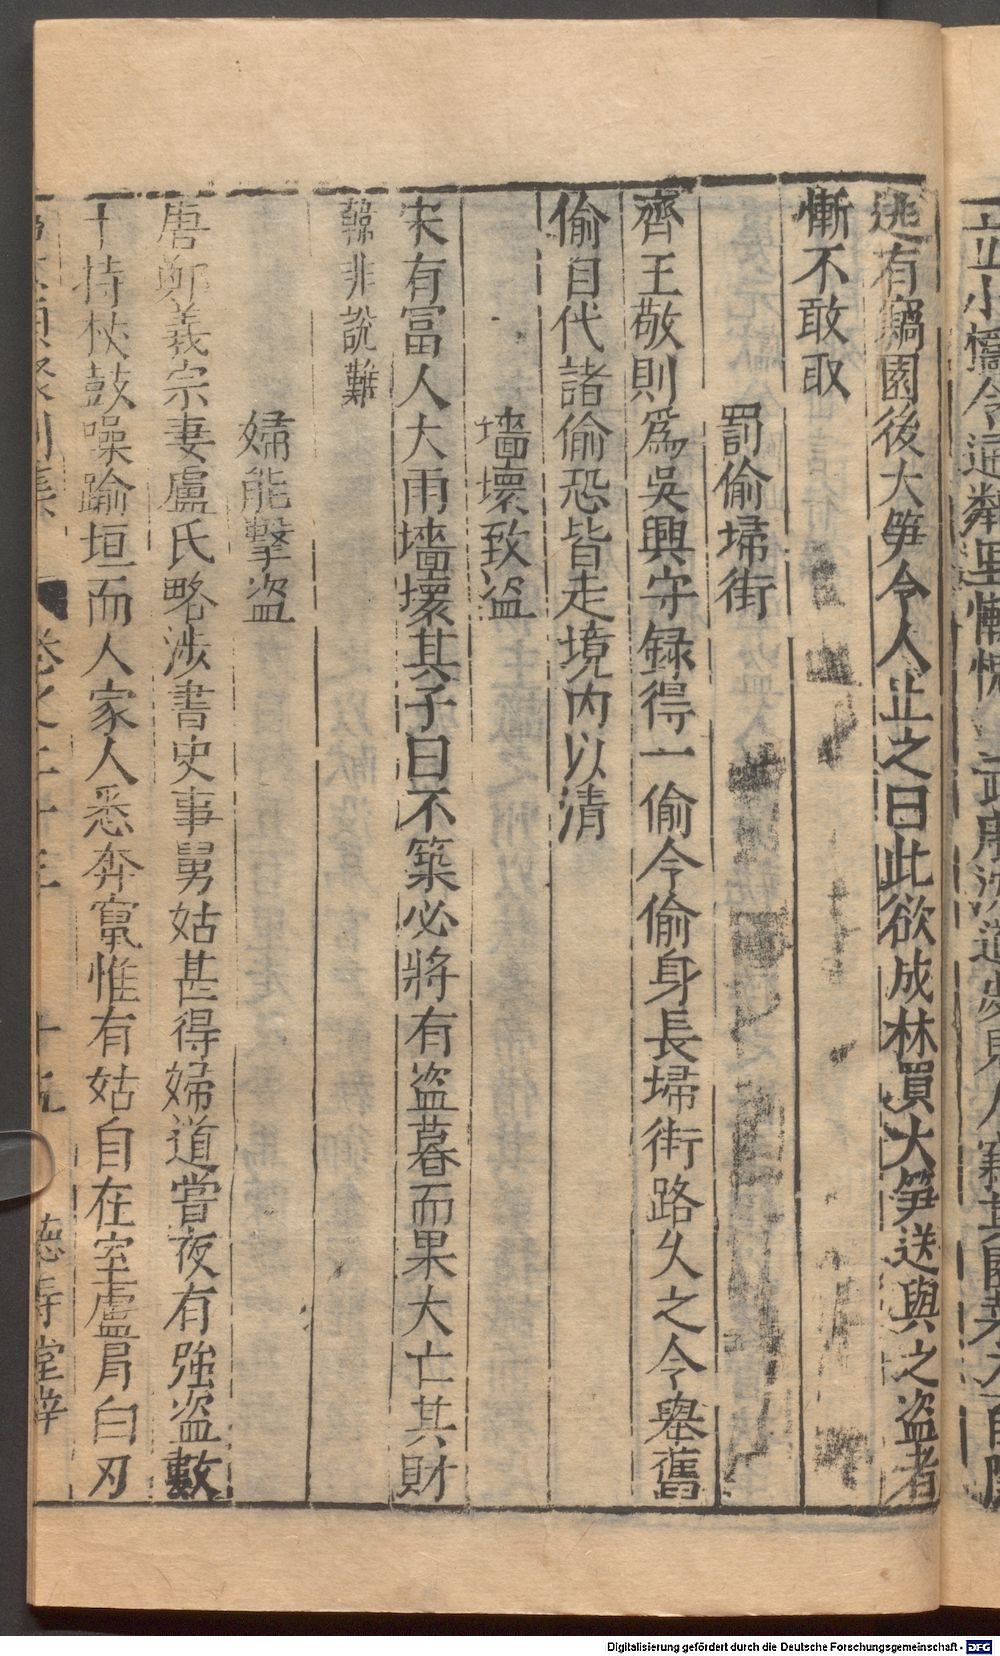 逃有竊園後大笋令人止之曰此欲成林買大笋送與之盜者
慚不敢取
罰偷埽街
齊王敬則爲吳興守録得一偷令偷身長埽街路久之令舉舊
偷自代諸偷恐皆走境内以清
墻壞致盜
宋有富人大雨墻壞其子曰不築必將有盜暮而果大亡其財
韓非說難
婦能擊盜
唐鄭義宗妻盧氏略涉書史事舅姑甚得婦道嘗夜有強盜數
十持杖鼓噪踰垣而入家人悉奔竄惟有姑自在室盧冐白刃
德壽堂梓
Digitalisierung gefördert durch die Deutsche Forschungsgemeinschaft - DFG